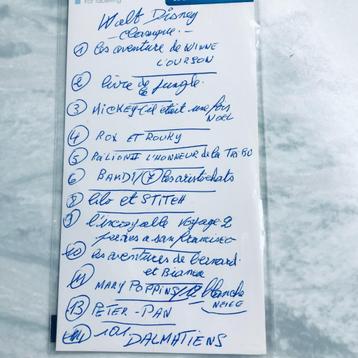 For labeling
Walt Disney
- Classique -
① les aventure de WINNIE
L'OURSON
② livre de la jungle
③ MICKEY (il était une fois
NOEL
④ ROX ET ROUKY
⑤ L'HONNEUR de la TRIBU
⑥ BAMBI / ⑦ les aristochats
⑧ lilo et STITCH
⑨ l'incroyable voyage 2
à san francisco
⑩ les aventures de bernard
et Bianca
⑪ MARY POPPINS / ⑫ blanche
NEIGE
⑬ PETER-PAN
⑭ 101 DALMATIENS